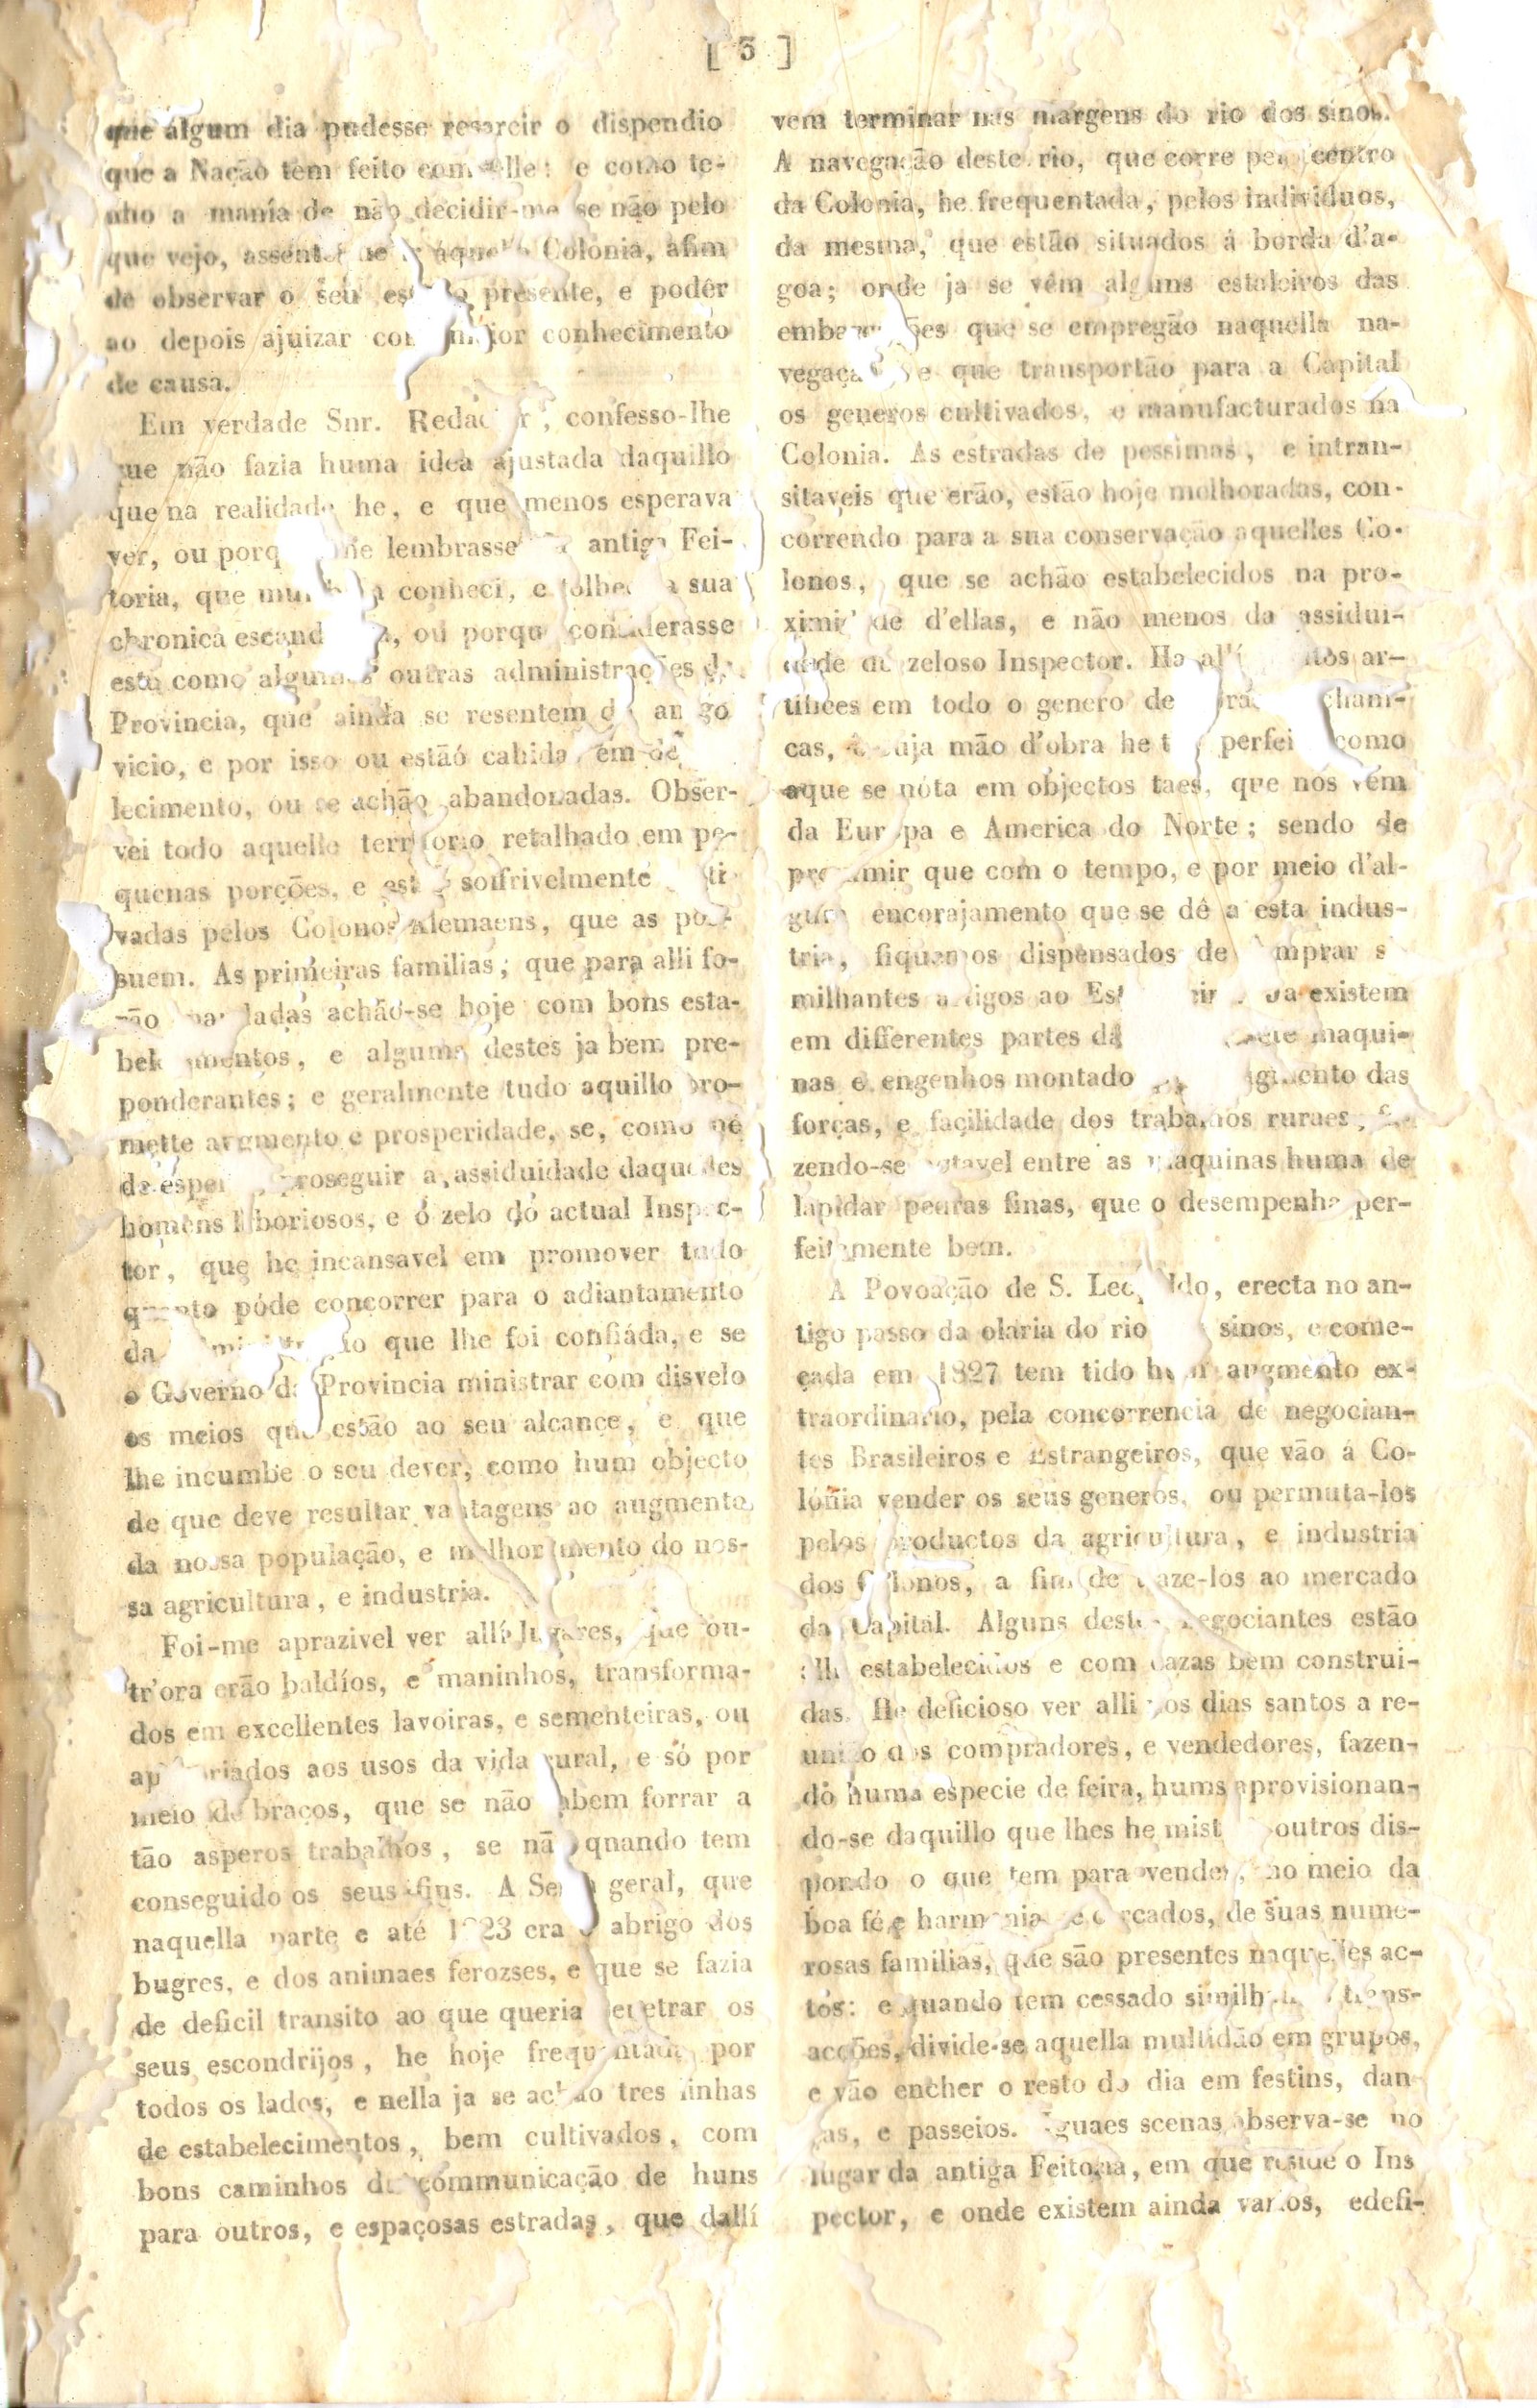 [ 3 ]
que álgum dia pudesse resarcir o dispendio
que a Nação tem feito com elle: e como te-
nho a mania de não decidir-me se não pelo
que vejo, assentei aquella Colonia, afim
de observar o seu estado presente, e podêr
ao depois ajuizar com maior conhecimento
de causa.
Em verdade Snr. Redactor, confesso-lhe
que não fazia huma idea ajustada daquillo
que na realidade he, e que menos esperava
ver, ou porque me lembrasse da antiga Fei-
toria, que conheci, e a sua
chronica escandalosa, ou porque considerasse
esta como algumas outras administrações da
Provincia, que ainda se resentem do antigo
vicio, e por isso ou estaõ cahidas em
lecimento, ou se achão abandonadas. Obser-
vei todo aquelle territorio retalhado em pe-
quenas porções, e estas soffrivelmente culti-
vadas pelos Colonos Alemaens, que as pos-
suem. As primeiras familias; que para alli fo-
rão mandadas achão-se hoje com bons esta-
belecimentos, e alguns destes ja bem pre-
ponderantes; e geralmente tudo aquillo pro-
mette augmento e prosperidade, se, como he
de esperar, proseguir a assiduidade daquelles
homens laboriosos, e o zelo do actual Inspec-
tor, que he incansavel em promover tudo
quanto póde concorrer para o adiantamento
da administração que lhe foi confiáda, e se
o Governo da Provincia ministrar com disvelo
os meios que estão ao seu alcance, e que
lhe incumbe o seu dever, como hum objecto
de que deve resultar vantagens ao augmento
da nossa população, e melhoramento do nos-
sa agricultura, e industria.
Foi-me aprazivel ver allí lugares, que ou-
tr'ora erão baldíos, e maninhos, transforma-
dos em excellentes lavoiras, e sementeiras, ou
apropriados aos usos da vida rural, e só por
meio de braços, que se não sabem forrar a
tão asperos trabalhos, se não quando tem
conseguido os seus fins. A Serra geral, que
naquella parte e até 1823 era o abrigo dos
bugres, e dos animaes ferozses, e que se fazia
de deficil transito ao que queria penetrar os
seus escondrijos, he hoje frequentada por
todos os lados, e nella ja se achão tres linhas
de estabelecimentos, bem cultivados, com
bons caminhos de communicação de huns
para outros, e espaçosas estradas, que dallí
vem terminar nas margens do rio dos sinos.
A navegação deste rio, que corre pelo centro
da Colonia, he frequentada, pelos individuos,
da mesma, que estão situados á borda d'a-
goa; onde ja se vêm alguns estaleiros das
embarcações que se empregão naquella na-
vegação e que transportão para a Capital
os generos cultivados, e manufacturados na
Colonia. As estradas de pessimas, e intran-
sitaveis que erão, estão hoje melhoradas, con-
correndo para a sua conservação aquelles Co-
lonos, que se achão estabelecidos na pro-
ximidade d'ellas, e não menos da assidui-
dade do zeloso Inspector. Ha allí muitos ar-
tifices em todo o genero de obras mechani-
cas, e cuja mão d'obra he tão perfeita como
aque se nóta em objectos taes, que nos vêm
da Europa e America do Norte; sendo de
prezumir que com o tempo, e por meio d'al-
gum encorajamento que se dê a esta indus-
tria, fiquemos dispensados de comprar si
milhantes artigos ao Estrangeiro. Ja existem
em differentes partes da maqui-
nas e engenhos montados augmento das
forças, e façilidade dos trabalhos ruraes, fa-
zendo-se notavel entre as maquinas huma de
lapidar pedras finas, que o desempenha per-
feitamente bem.
A Povoação de S. Leopoldo, erecta no an-
tigo passo da olaria do rio dos sinos, e come-
çada em 1827 tem tido hum augmento ex-
traordinario, pela concorrencia de negocian-
tes Brasileiros e Estrangeiros, que vão á Co-
lónia vender os seus generos, ou permuta-los
pelos productos da agricultura, e industria
dos Colonos, a fim de traze-los ao mercado
da Capital. Alguns destes negociantes estão
alli estabelecidos e com cazas bem construi-
das. He deficioso ver alli nos dias santos a re-
união dos compradores, e vendedores, fazen-
do huma especie de feira, hums aprovisionan-
do-se daquillo que lhes he mister outros dis-
pondo o que tem para vender, no meio da
boa fé e harmonia e cercados, de suas nume-
rosas familias, que são presentes naquelles ac-
tos: e quando tem cessado similhantes trans-
acções, divide-se aquella multidão em grupos,
e vão encher o resto do dia em festins, dan
ças, e passeios. Iguaes scenas observa-se no
lugar da antiga Feitoria, em que reside o Ins
pector, e onde existem ainda varios, edefi-